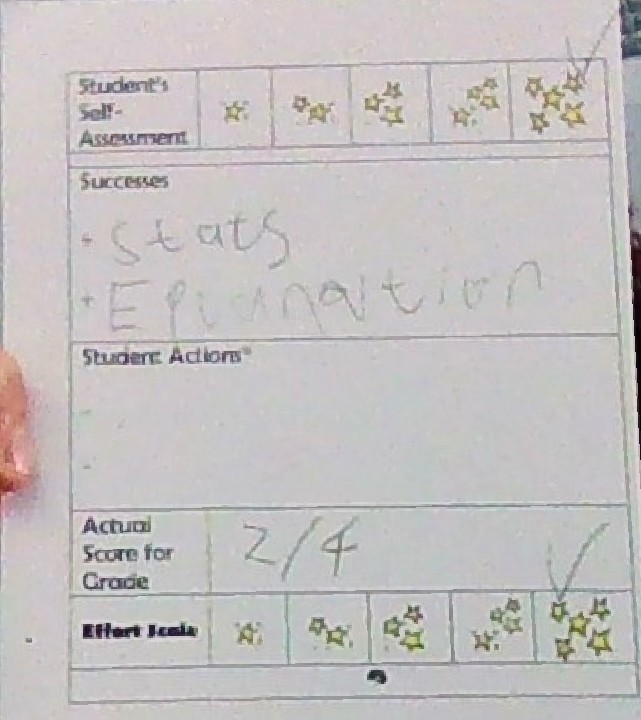 Student's
Self-
Assessment
Successes
+ stats
+ Eplanation
Student Actions*
-
-
Actual
Score for
Grade
2/4
Effort Scale